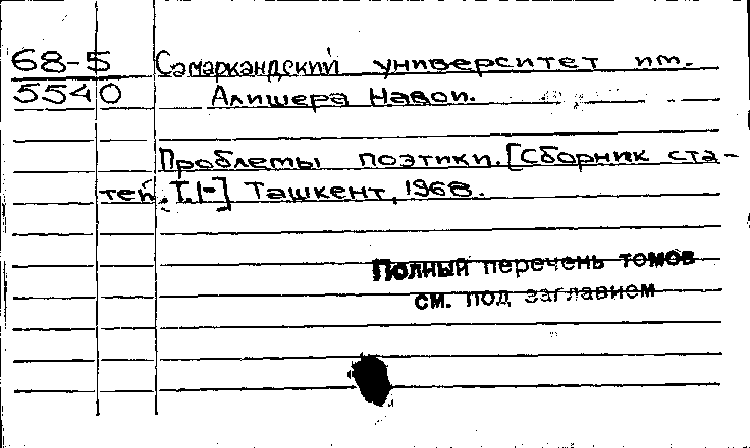 68-5 Самаркандский университет им.
5540 Алишера Навои.
Проблемы поэтики. [Сборник ста-
тей. Т. 1-] Ташкент, 1968.
Полный перечень томов
см. под заглавием